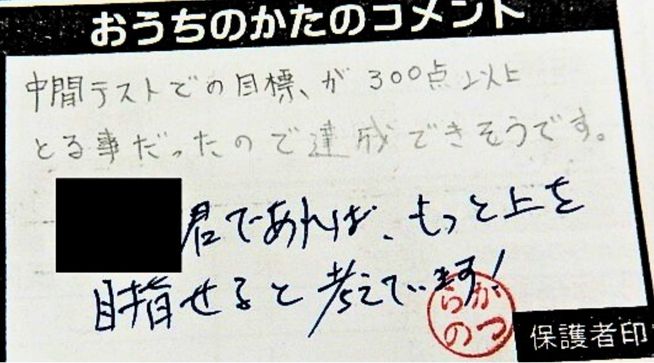 おうちのかたのコメント
中間テストでの目標、が300点以上
とる事だったので達成できそうです。
君であれば、もっと上を
目指せると考えています!
保護者印